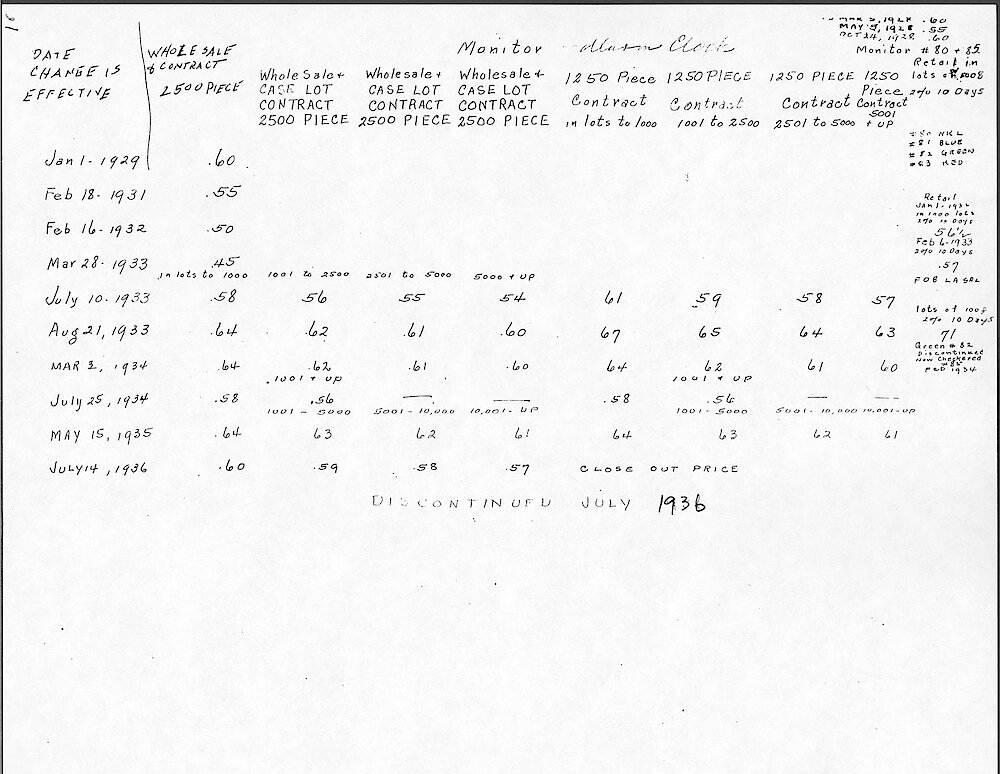 16
MAR 5, 1928 .60
MAY 5, 1928 .55
OCT 24, 1928 .60
Monitor Alarm Clock
Monitor # 80 + 85
Retail in
lots of
2% 10 Days
DATE
CHANGE IS
EFFECTIVE
WHOLESALE
& CONTRACT
2500 PIECE
Whole Sale +
CASE LOT
CONTRACT
2500 PIECE
Wholesale +
CASE LOT
CONTRACT
2500 PIECE
Wholesale +
CASE LOT
CONTRACT
2500 PIECE
1250 Piece
Contract
in lots to 1000
1250 PIECE
Contract
1001 to 2500
1250 PIECE
Contract
2501 to 5000
1250
Piece
Contract
5001
+ UP
#80 NKL
#81 BLUE
#82 GREEN
#83 RED
Jan 1 - 1929 .60
Feb 18 - 1931 .55
Feb 16 - 1932 .50
Mar 28 - 1933 .45
in lots to 1000 1001 to 2500 2501 to 5000 5000 + UP
July 10 - 1933 .58 .56 .55 .54 61 59 .58 57
Aug 21, 1933 .64 .62 .61 .60 67 65 64 63
MAR 3, 1934 .64 .62 .61 .60 64 62 61 60
.1001 + UP 1001 + UP
July 25, 1934 .58 .56 — — .58 .56 — —
1001 - 5000 5001 - 10,000 10,001 - UP 1001 - 5000 5001 - 10,000 10,001 - UP
MAY 15, 1935 .64 63 62 61 64 63 62 61
JULY 14, 1936 .60 .59 .58 .57 CLOSE OUT PRICE
DISCONTINUED JULY 1936
Retail
Jan 1 - 1932
in 1000 lots
2% 10 Days
56½
Feb 6 - 1933
2% 10 Days
.57
FOB LA SAL
lots of
2% 10 Days
71
Green #82
Discontinued
Now Checkered
FEB 1934